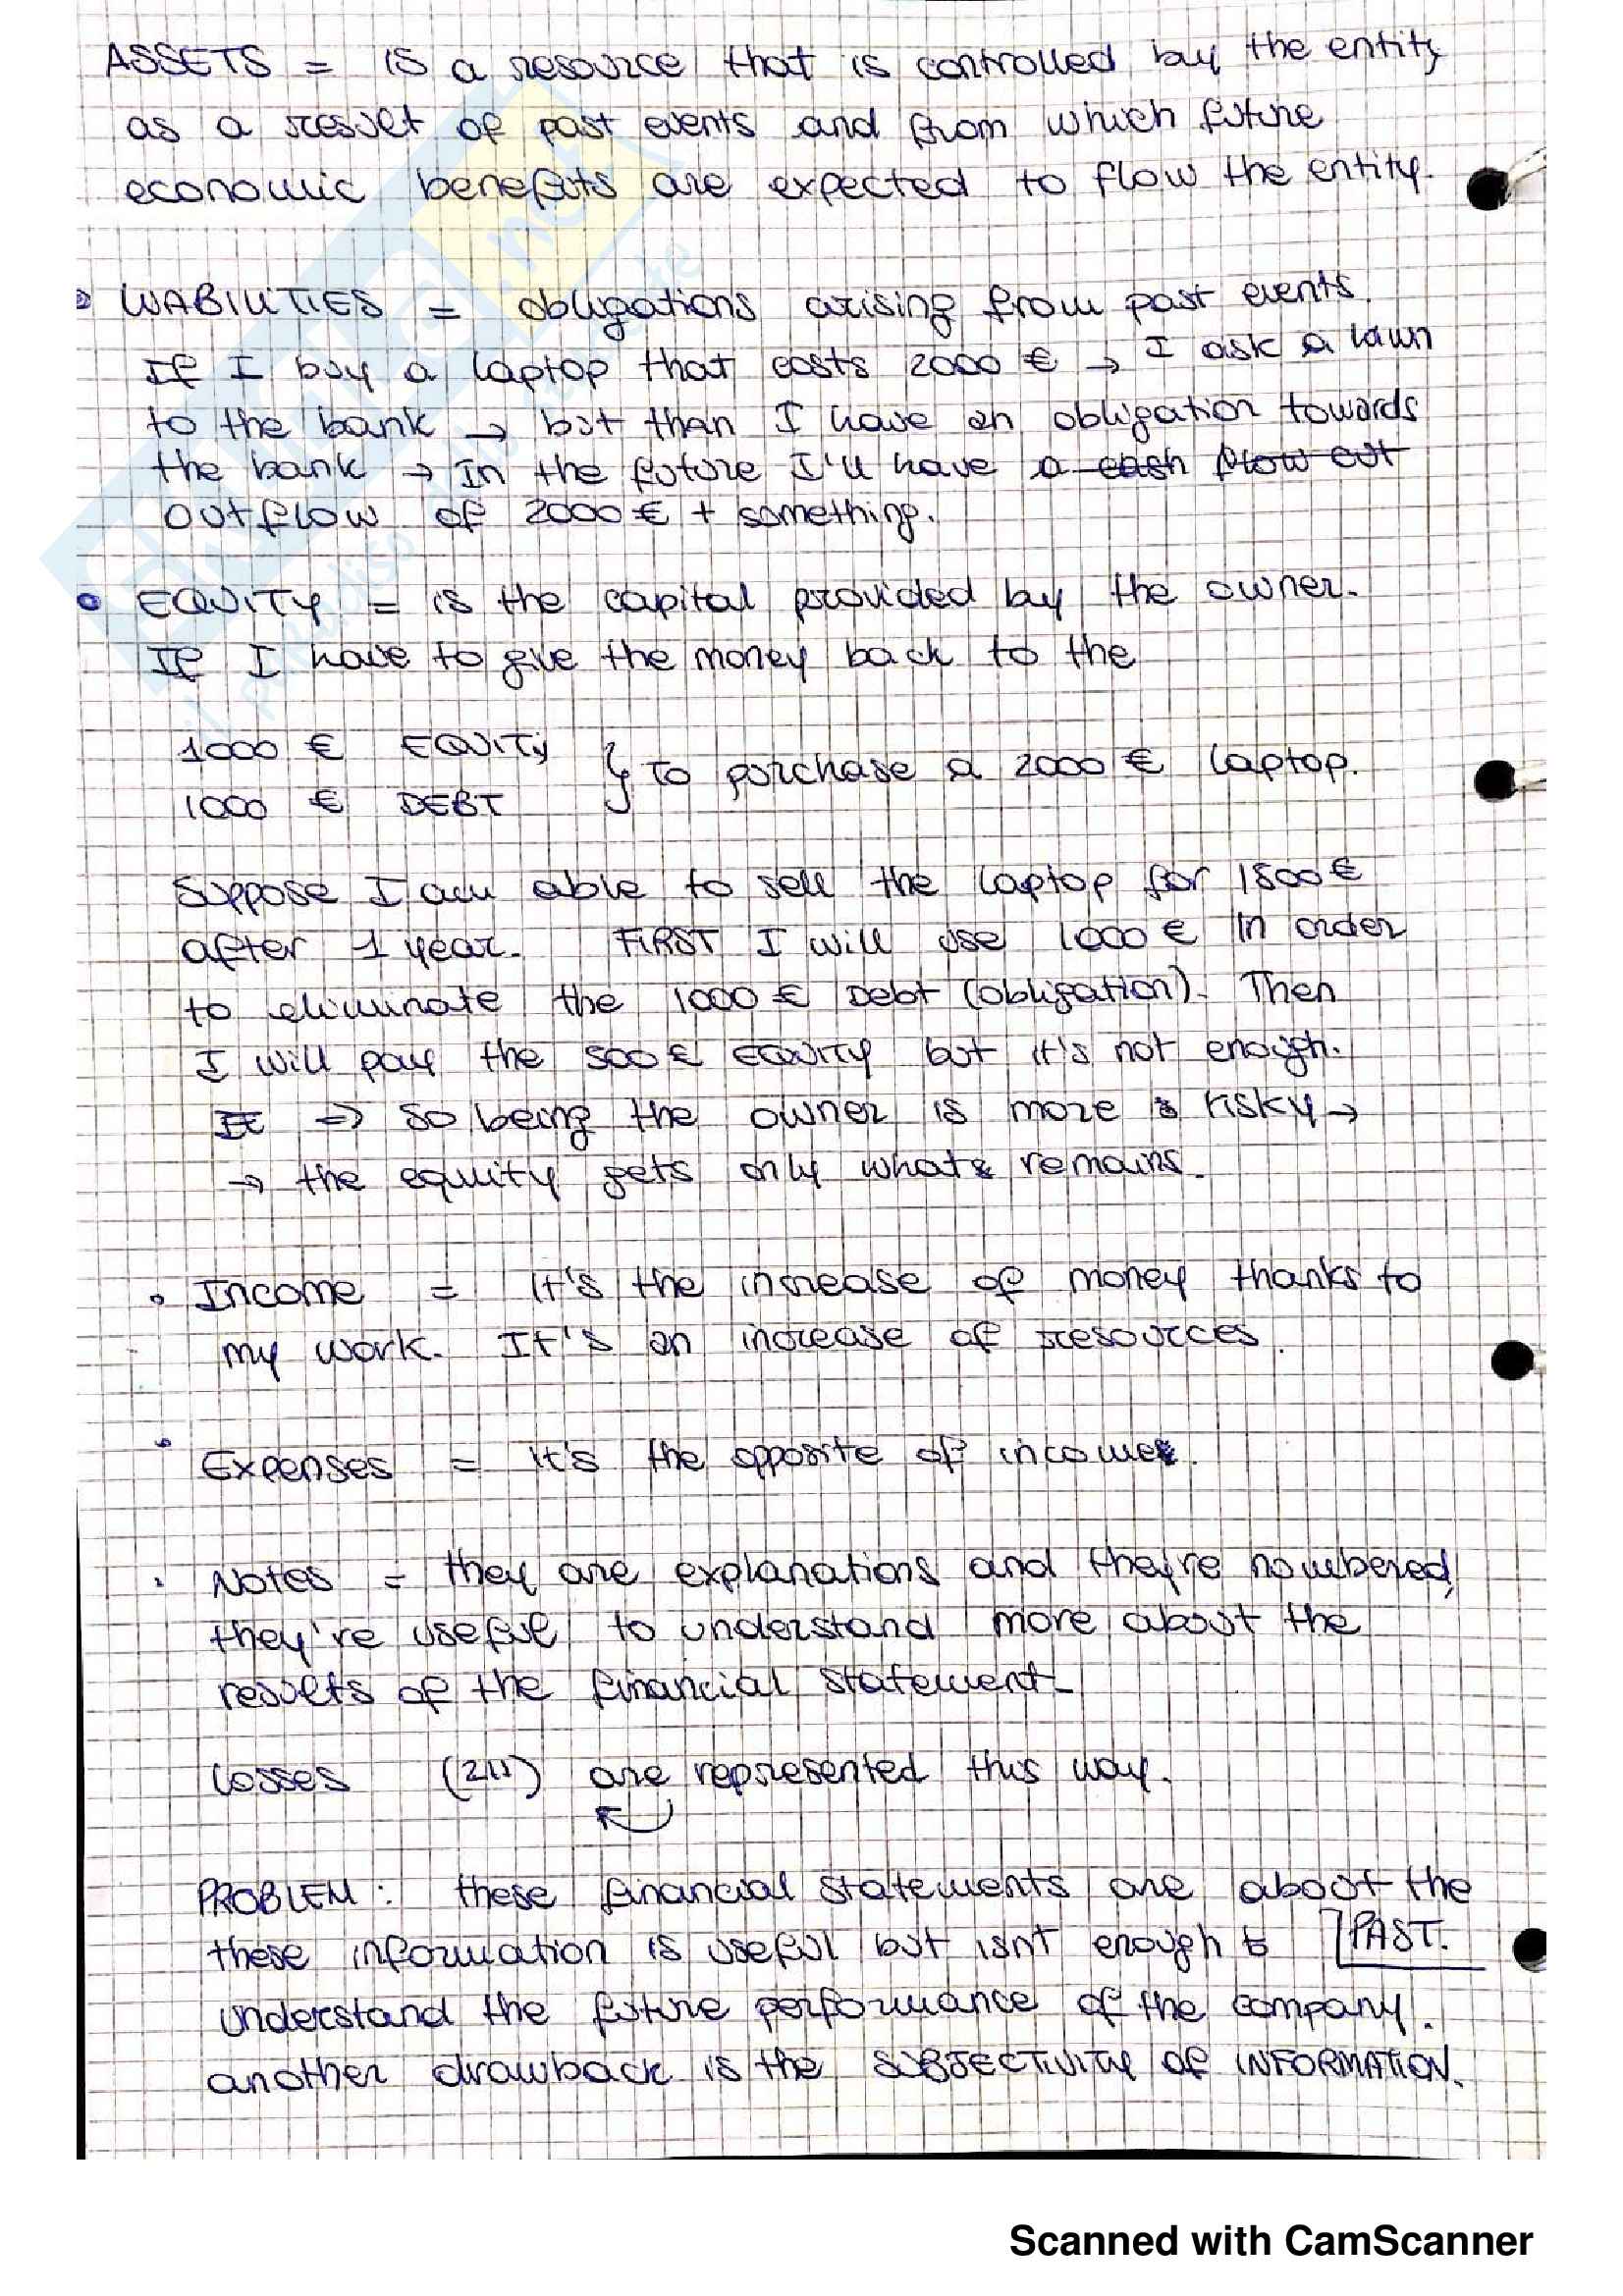 ASSETS = is a resource that is controlled by the entity
as a result of past events and from which future
economic benefits are expected to flow the entity.
• LIABILITIES = obligations arising from past events.
If I buy a laptop that costs 2000 € → I ask a lawn
to the bank → but than I have an obligation towards
the bank → In the future I'll have a cash flow out
outflow of 2000 € + something.
• EQUITY = is the capital provided by the owner.
If I have to give the money back to the
1000 € EQUITY } to purchase a 2000 € laptop.
1000 € DEBT
Suppose I am able to sell the laptop for 1500 €
after 1 year. FIRST I will use 1000 € in order
to eliminate the 1000 € Debt (obligation). Then
I will pay the 500 € EQUITY but it's not enough.
⇒ so being the owner is more risky →
→ the equity gets only what remains.
• Income = It's the increase of money thanks to
my work. It's an increase of resources.
• Expenses = it's the opposite of income.
• Notes = they are explanations and they're numbered,
they're useful to understand more about the
results of the financial statement.
Losses (211) are represented this way.
PROBLEM: these financial statements are about the
these information is useful but isn't enough to PAST.
understand the future performance of the company.
another drawback is the SUBJECTIVITY OF INFORMATION.
Scanned with CamScanner